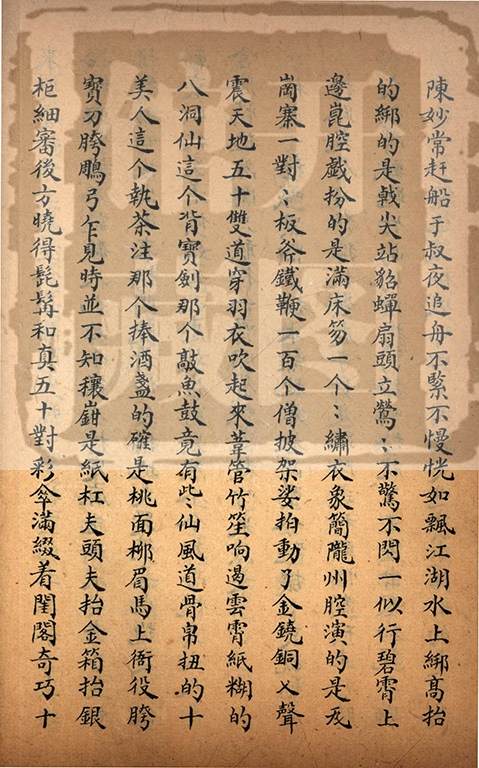 陳妙常赶船于叔夜追舟不緊不慢恍如飄江湖水上綁髙抬
的綁的是戟尖站貂蟬扇頭立鶯〻不驚不閃一似行碧霄上
邊崑腔戯扮的是滿床笏一个〻繡衣象簡隴州腔演的是瓦
崗寨一對〻板斧鐵鞭一百个僧披架娑拍動了金鐃銅乂聲
震天地五十雙道穿羽衣吹起來葦管竹笙响遏雲霄紙糊的
八洞仙這个背寳劍那个敲魚鼓竟有些〻仙風道骨帛扭的十
美人這个執茶注那个捧酒盞的確是桃面柳眉馬上衙役胯
寳刀胯鵰弓乍見時並不知穰㘅是紙杠夫頭夫抬金箱抬銀
柜細審後方曉得髭髯和真五十對彩傘滿綴着閨閣奇巧十